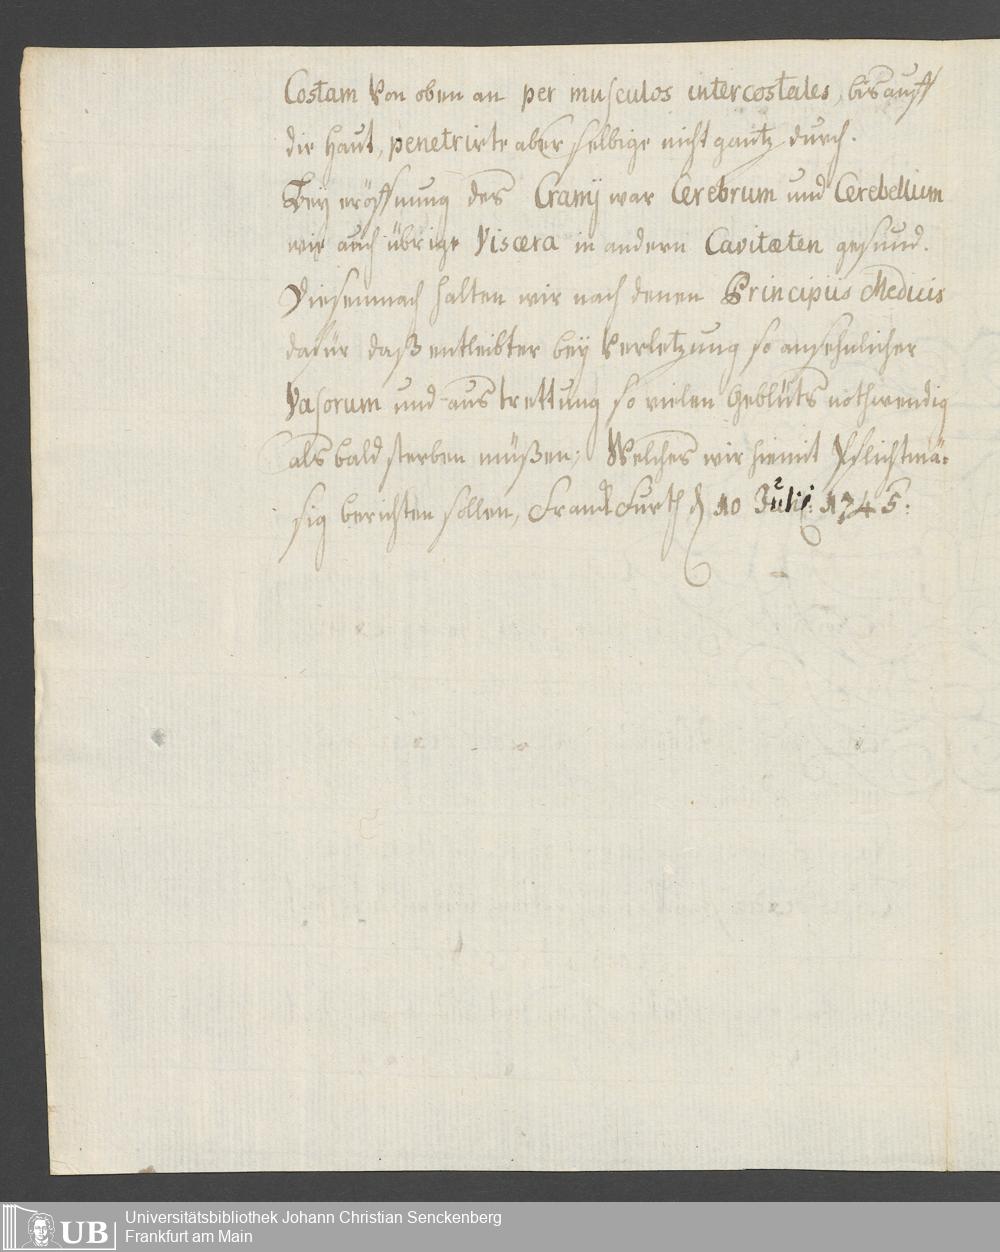 Costam von oben an per musculos intercostales, bis auff
die Haut, penetrirte aber selbige nicht gantz durch.
Bey eröffnung des Cranij war Cerebrum und Cerebellum
wie auch übrige Viscera in andern Cavitæten gesund.
Diesemnach halten wir nach denen Principiis Medicis
dafür daß entleibter bey Verletzung so ansehnlicher
Vasorum und austrettung so vielen Geblüts nothwendig
als bald sterben müßen; Welches wir hiemit Pflichtmä-
sig berichten sollen, Franckfurth d 10 Julij: 1745:
UB
Universitätsbibliothek Johann Christian Senckenberg
Frankfurt am Main